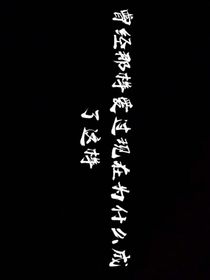 曾经那样爱过现在为什么成
了这样